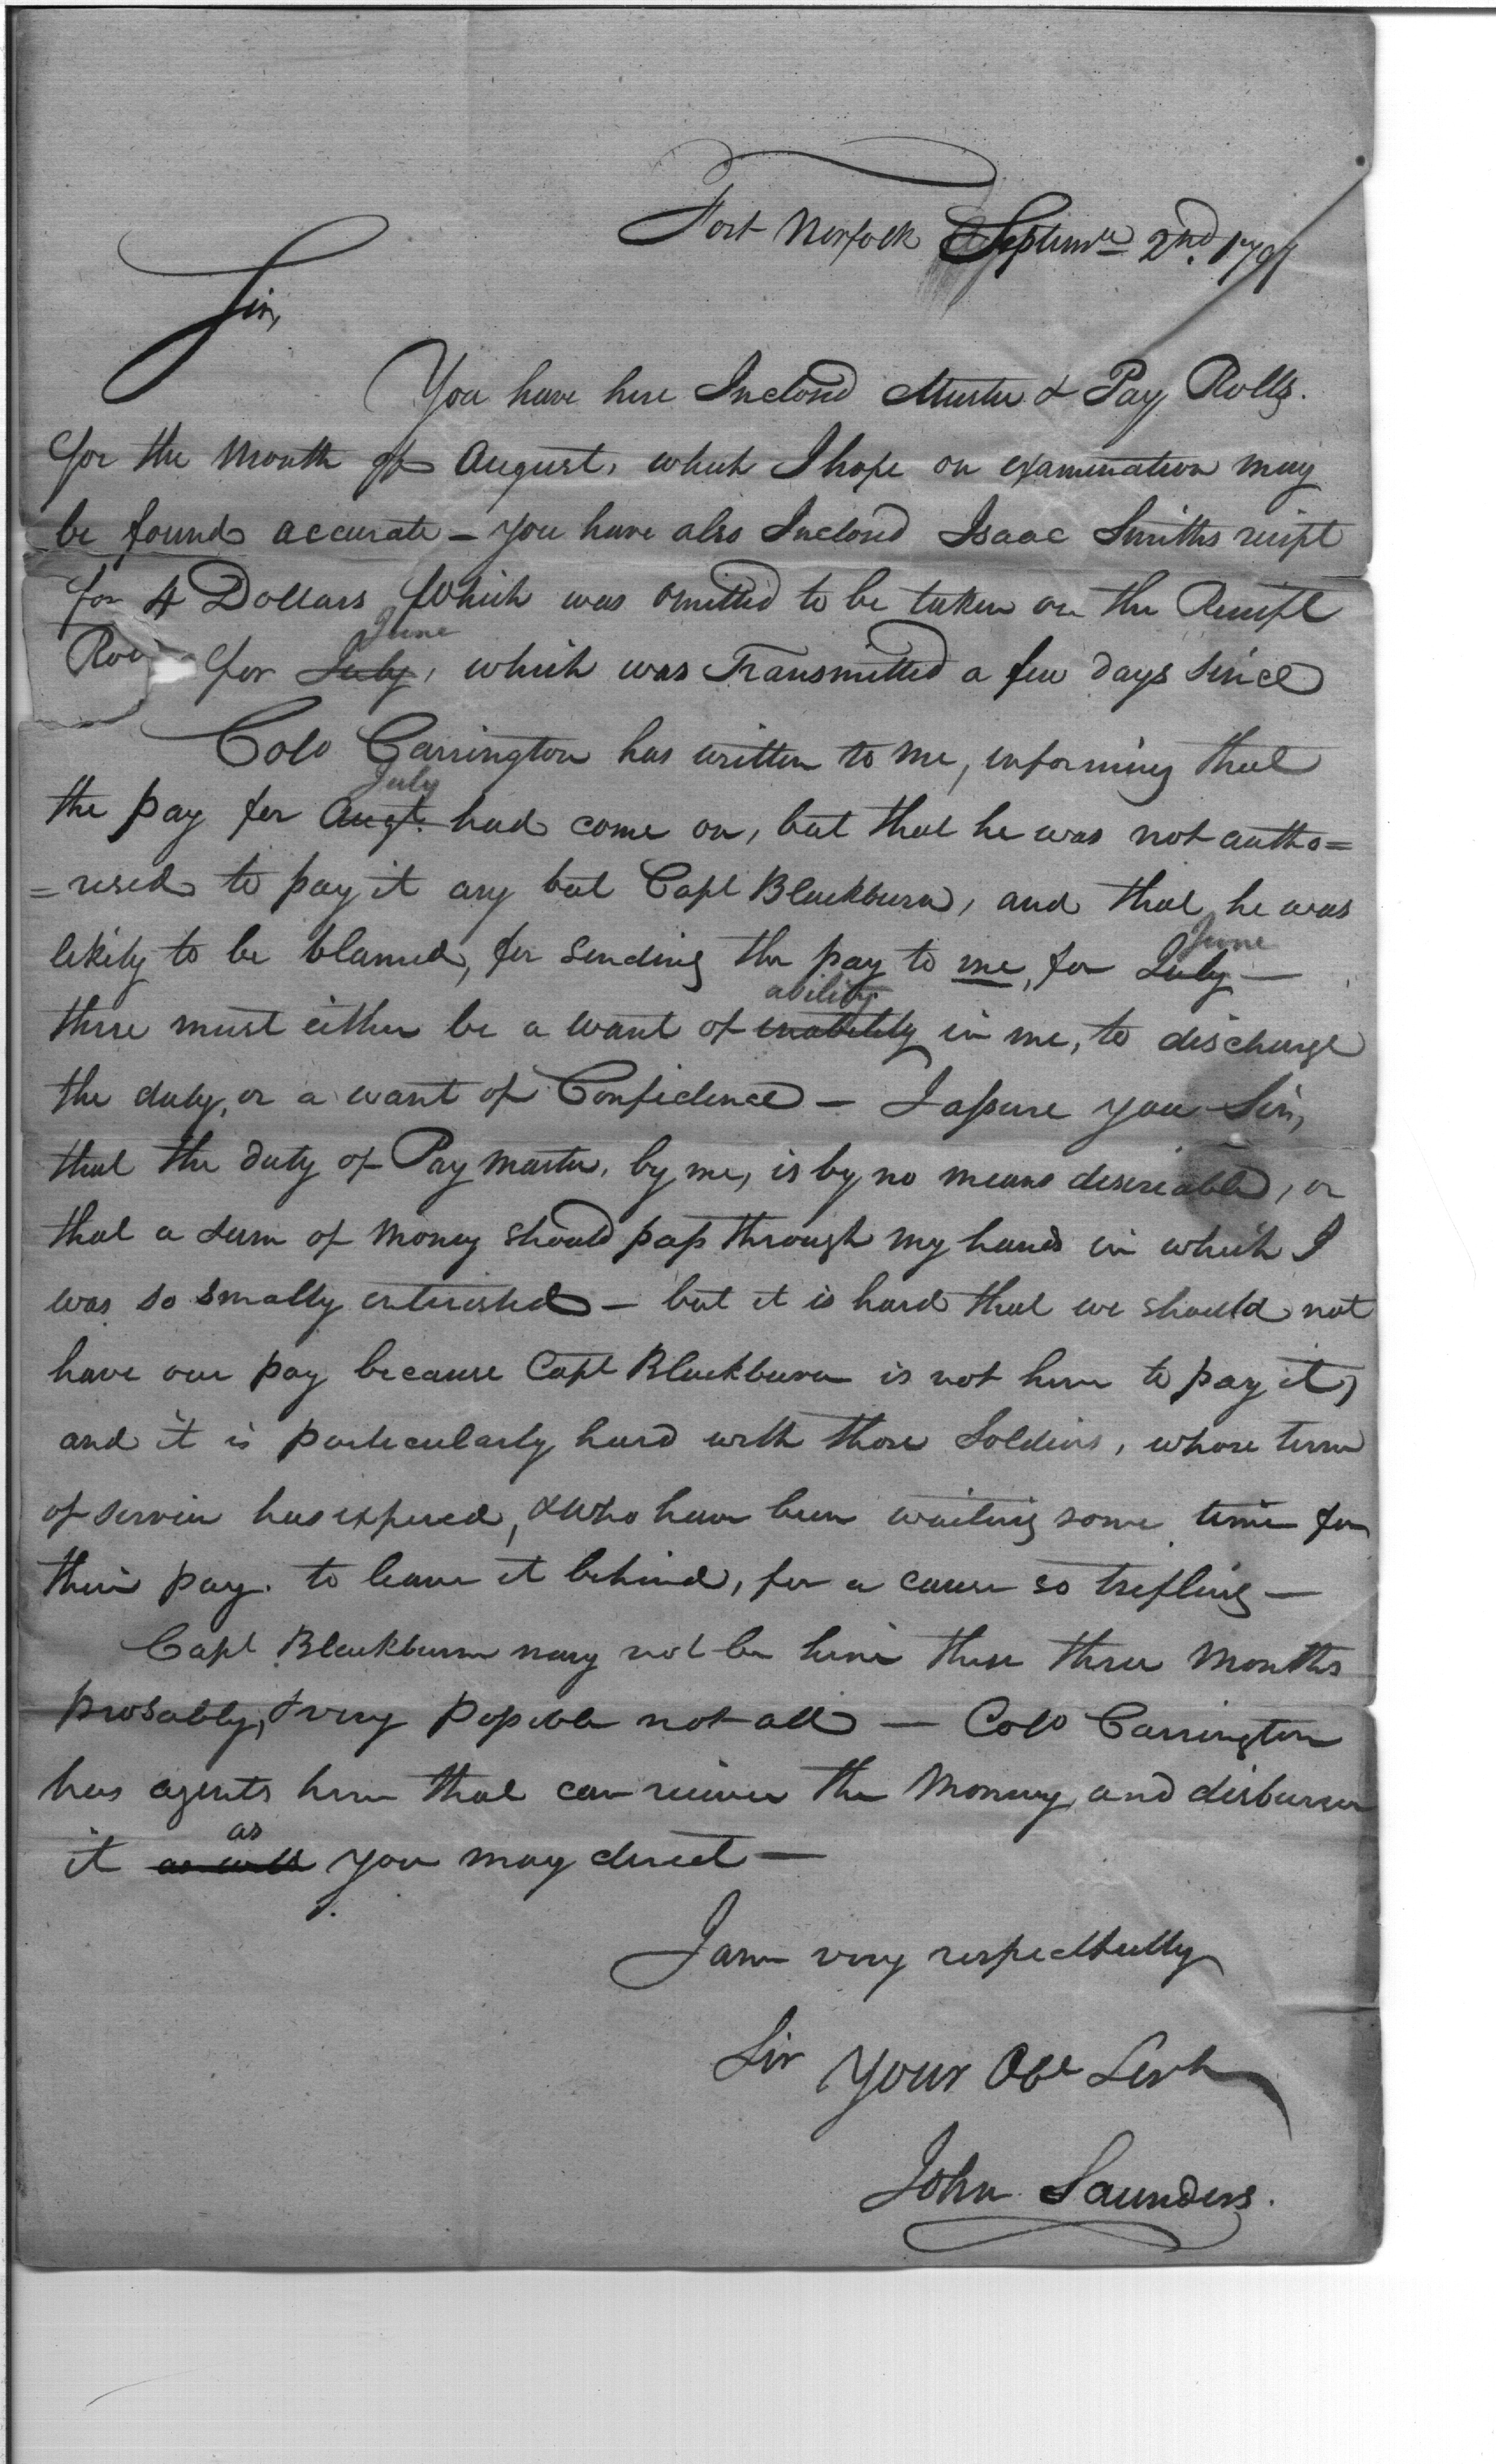 Fort Norfolk Septemr 2nd. 1797
Sir,
You have here Inclosd Muster & Pay Rolls.
for the Month of August, which I hope on examination may
be found accurate – you have also Inclosed Isaac Smiths reicpt
for 4 Dollars which was omitted to be taken on the Receipt
June
Roll for July, which was Transmitted a few days since
Colo Carrington has written to me, informing that
July
the pay for Augt. had come on, but that he was not autho=
=rised to pay it any but Capt Blackburn, and that he was
June
likely to be blamed, for sending the pay to me, for July –
ability
there must either be a want of inability in me, to discharge
the duty, or a want of Confidence – I assure you Sir,
that the duty of Pay Master, by me, is by no means desireable, or
that a sum of Money should pass through my hands in which I
was so smally interested – but it is hard that we should not
have our pay because Capt Blackburn is not here to pay it,
and it is particularly hard with those Soldiers, whose term
of service has expired, & who have been waiting some time for
their pay. to leave it behind, for a cause so trifling –
Capt Blackburn may not be here these three Months
probably, & very possible not all – Colo Carrington
has agents here that can receive the Money, and disburse
as
it as will you may direct –
I am very respectfully
Sir Your Obt Servt
John Saunders.